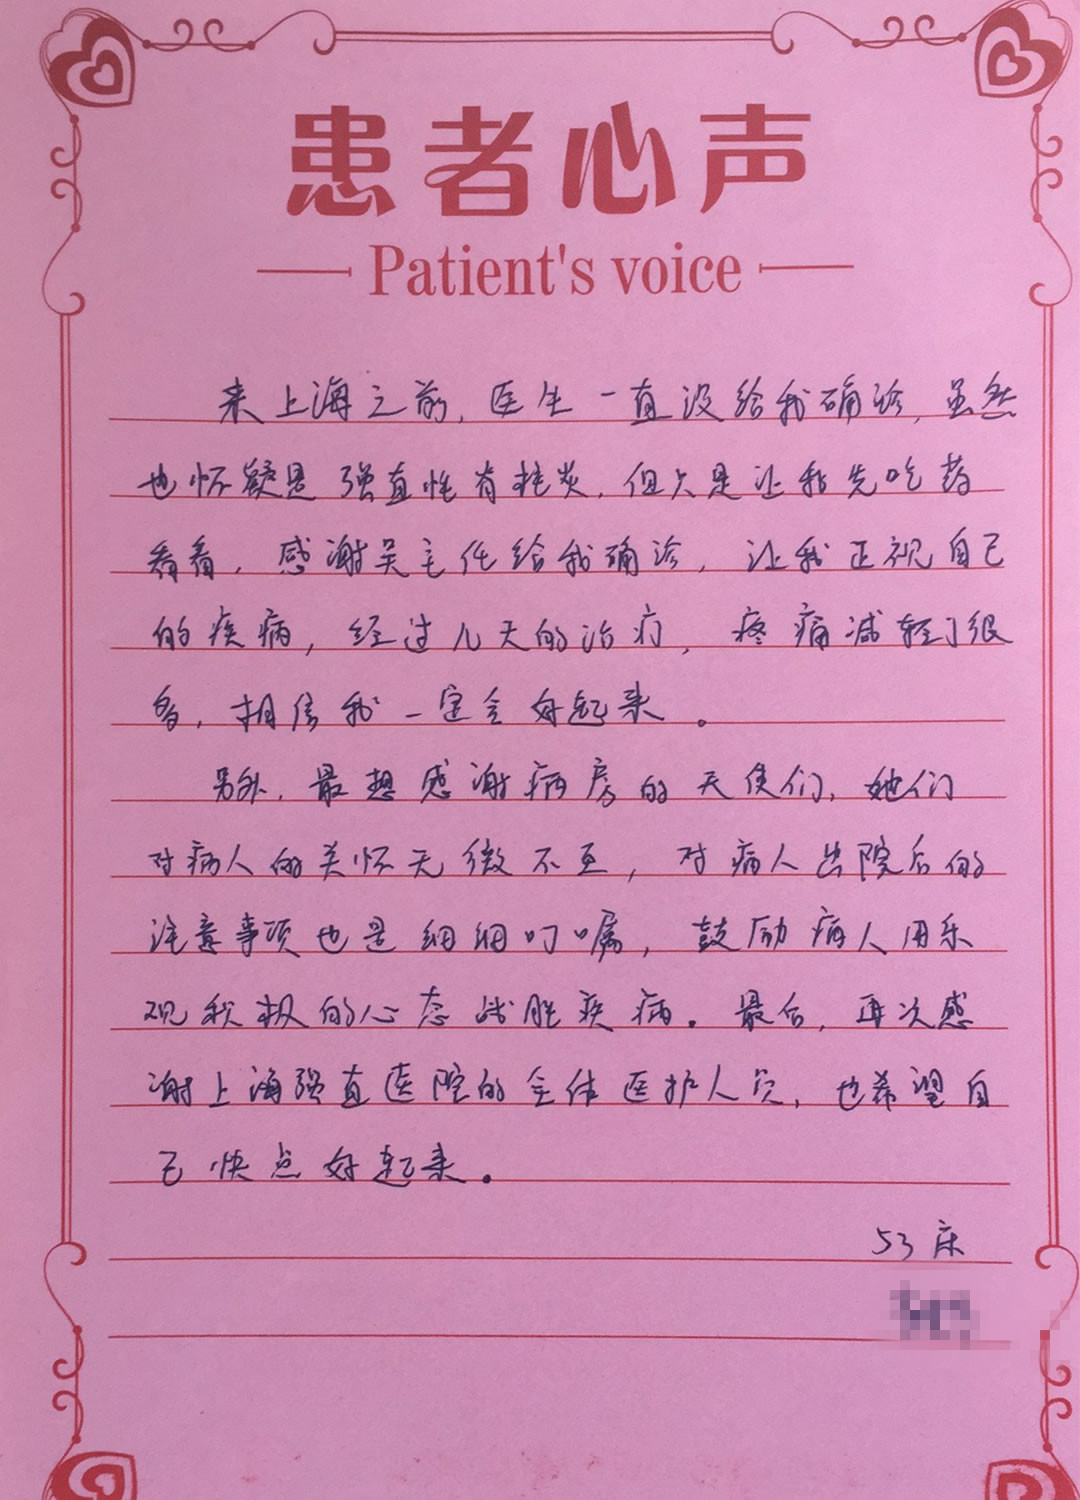 患者心声
Patient's voice
来上海之前,医生一直没给我确诊,虽然
也怀疑是强直性脊柱炎,但只是让我先吃药
看看,感谢吴主任给我确诊,让我正视自己
的疾病,经过几天的治疗,疼痛减轻了很
多,相信我一定会好起来。
另外,最想感谢病房的天使们,她们
对病人的关怀无微不至,对病人出院后的
注意事项也是细细叮嘱,鼓励病人用乐
观积极的心态战胜疾病。最后,再次感
谢上海强直医院的全体医护人员,也希望自
己快点好起来。
53床